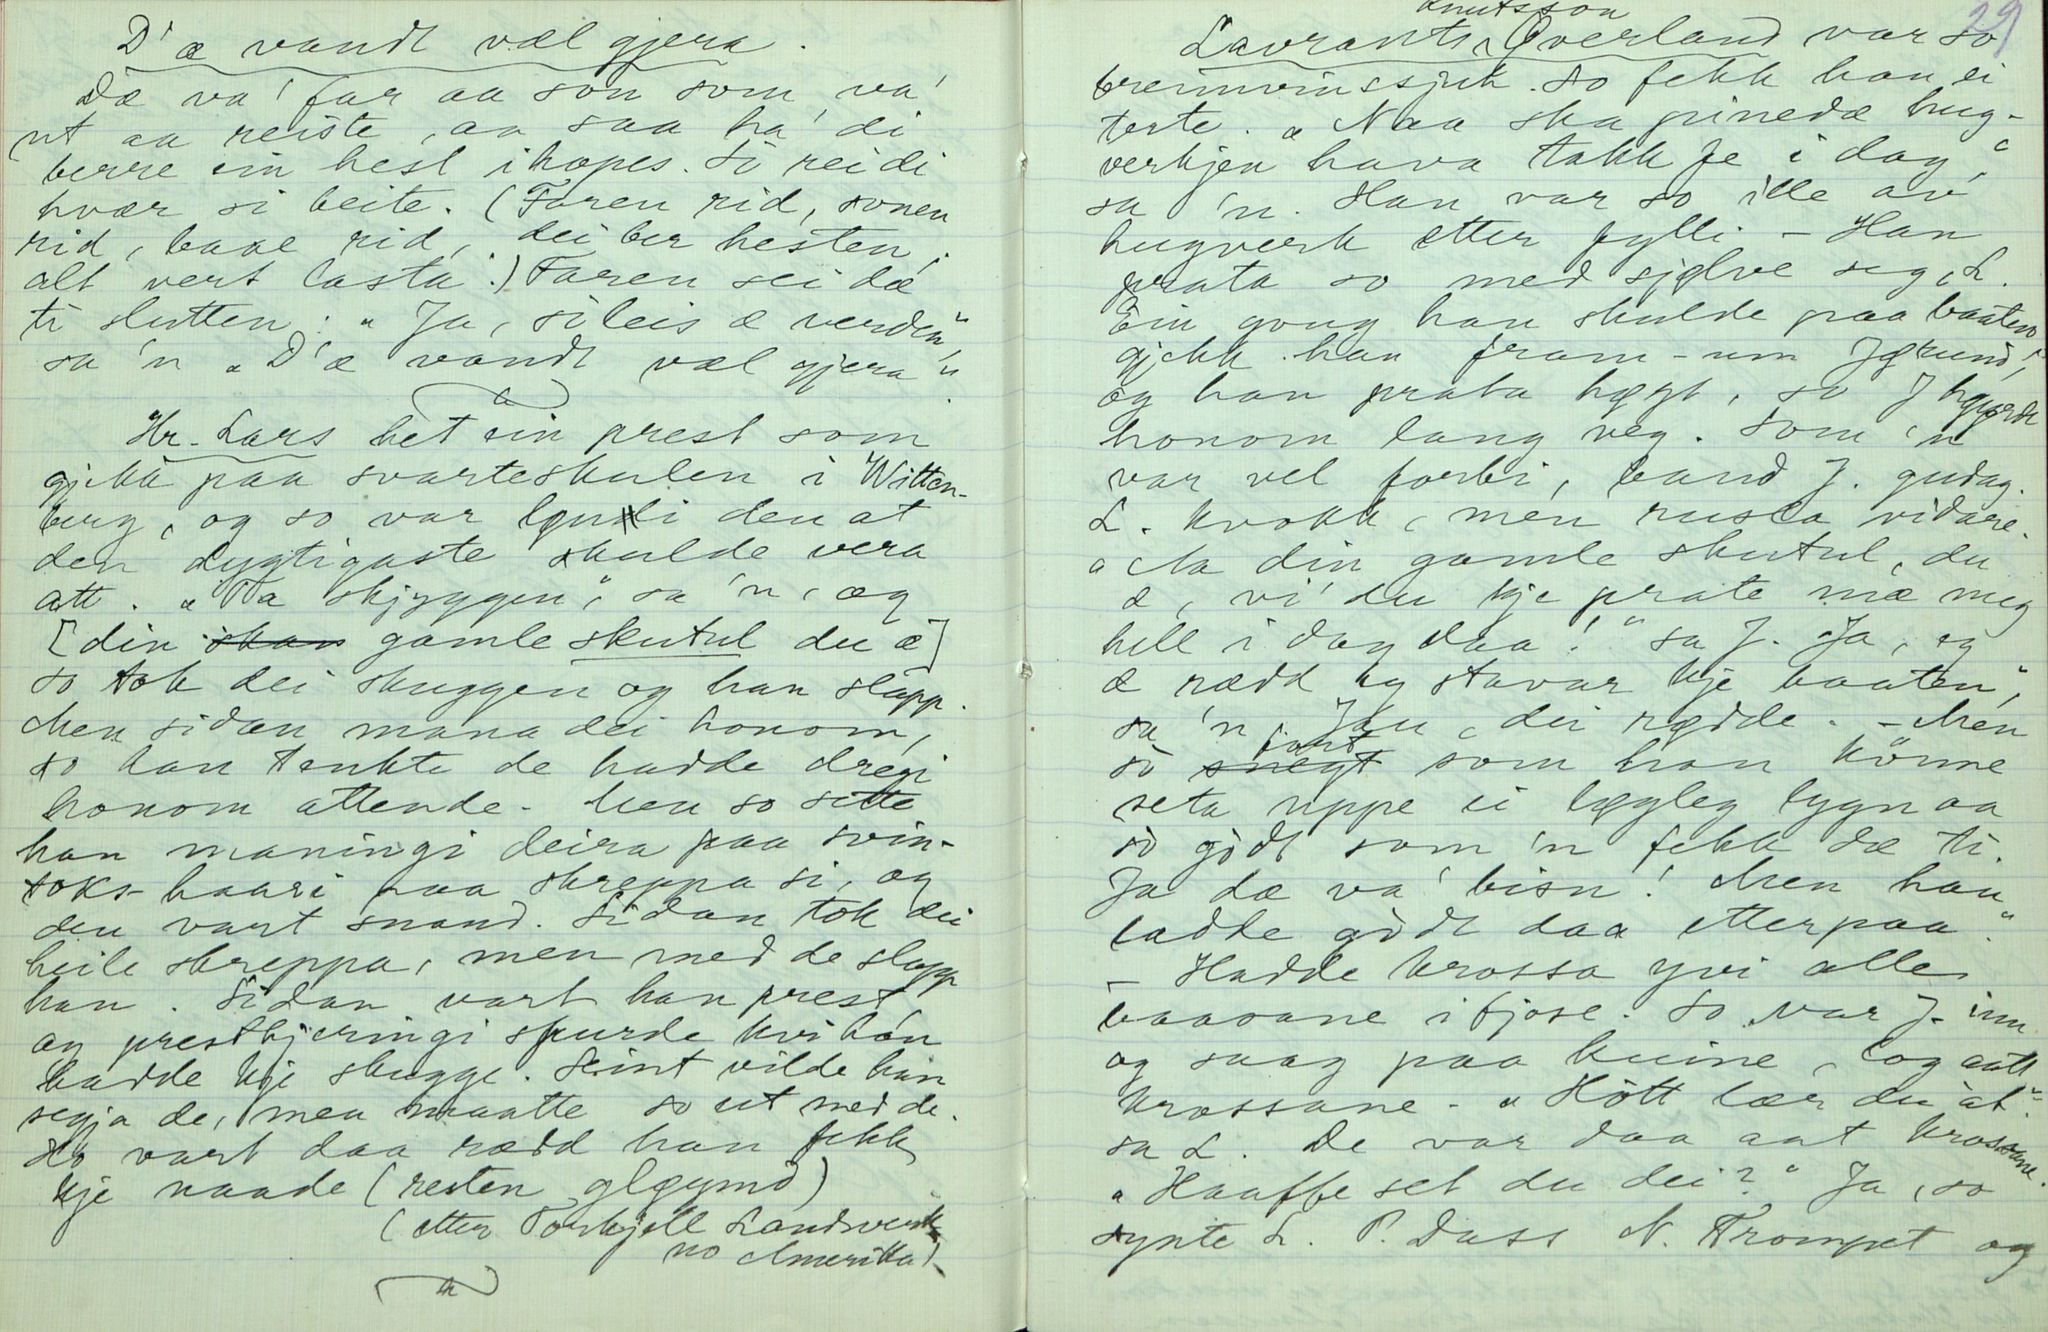 D'æ vandt væl gjera.
Dæ va' far aa son som va'
ut aa reiste, aa saa ha' di
berre ein hest ihopes. So rei di
hvær si beite. (Faren rid, sonen
rid, baae rid, dei ber hesten,
alt vert lasta.) Faren sei dæ
ti slutten: "Ja, sileis æ verden",
sa 'n "D'æ vandt væl gjera".
Hr. Lars het ein prest som
gjekk paa svarteskulen i Witten-
berg, og so var lgnti den at
den dygtigaste skulde vera
att. "Ta skjyggen", sa 'n, og
[din skan gamle skutul du æ]
so tok dei skuggen og han slapp.
Men sidan mana dei honom,
so han tenkte de hadde dregi
honom attende. Men so sette
han maningi deira paa svin-
soks-haari paa skreppa si, og
den vart snaud. Sidan tok dei
heile skreppa, men med de slapp
han. Sidan vart han prest
og prestkjeringi spurde kvi han
hadde kje skugge. Seint vilde han
segja de, men maatte so ut med de.
Ho vart daa rædd han fekk
kje naade (resten gløymd)
(etter Torkjell Landsverk
no Amerika)
29
Knutsson
Lavrants Øverland var so
brennvinssjuk. So fekk han ei
terte. "Naa ska pinedæ hug-
verkjen hava takk fe i dag",
sa 'n. Han var so ille av
hugverk etter fylli. – Han
prata so med sjølve seg, L.
Ein gong han skulde paa baaten,
gjekk han fram-um Jørund,
og han prata høgt, so J høyrde
honom lang veg. Som 'n
var vel forbi, baud J. gudag.
L. kvokk, men rusla vidare.
"Aa din gamle skutul, du
æ, vi' du kje prate mæ meg
hell i dag daa!" sa J. Ja, eg
æ rædd eg stavar kje baaten",
sa 'n. Jau, dei rødde. – Men
so snøgt fort som han kônne
seta uppe ei løgleg lygn aa
so godt som 'n fekk dæ ti.
Ja dæ va' bisn! Men han
ladde godt daa etterpaa."
– Hadde krossa yvi alle
baasane i fjose. So var J. inn
og saag paa kuine, log aatt
krossane. "Hott lær du åt"
sa L. De var daa aat krossane.
"Haaffe set du dei?" Ja, so
synte L. P. Dass N. Trompet og